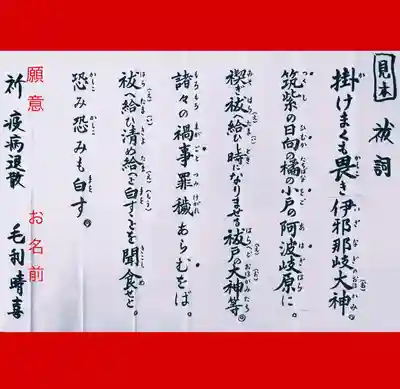 見本 祓詞
掛けまくも畏き伊邪那岐大神。
筑紫の日向の橘の小戸の阿波岐原に。
禊ぎ祓へ給ひ時になりませる祓戸の大神等。
諸々の禍事罪穢あらむをば。
祓へ給ひ清め給へと白すことを聞食せと。
恐み恐みも白す。
願意 お名前
祈 疫病退散 毛利晴喜